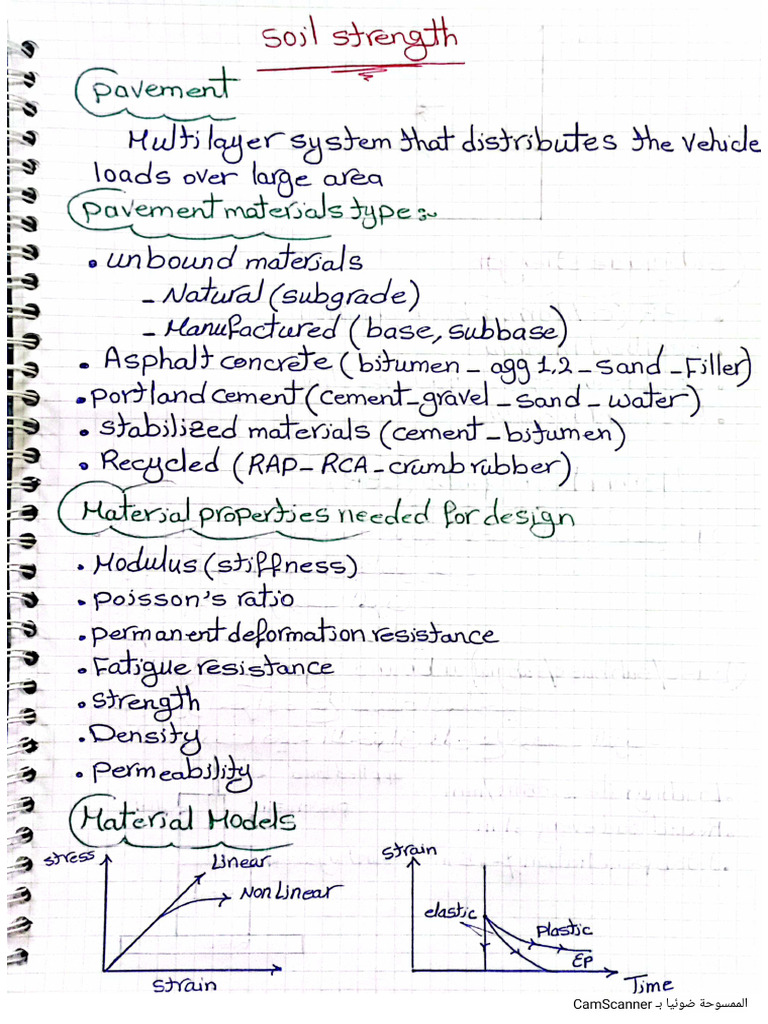 Soil strength
pavement
Multilayer system that distributes the vehicle
loads over large area
pavement materials type:~
• unbound materials
- Natural (subgrade)
- Manufactured (base, subbase)
• Asphalt concrete (bitumen - agg 1,2 - sand - Filler)
• portland cement (cement - gravel - sand - water)
• stabilized materials (cement - bitumen)
• Recycled (RAP - RCA - crumb rubber)
Material properties needed for design
• Modulus (stiffness)
• poisson's ratio
• permanent deformation resistance
• Fatigue resistance
• strength
• Density
• permeability
Material Models
stress
Linear
Non Linear
strain
strain
elastic
plastic
εp
Time
الممسوحة ضوئيا بـ CamScanner